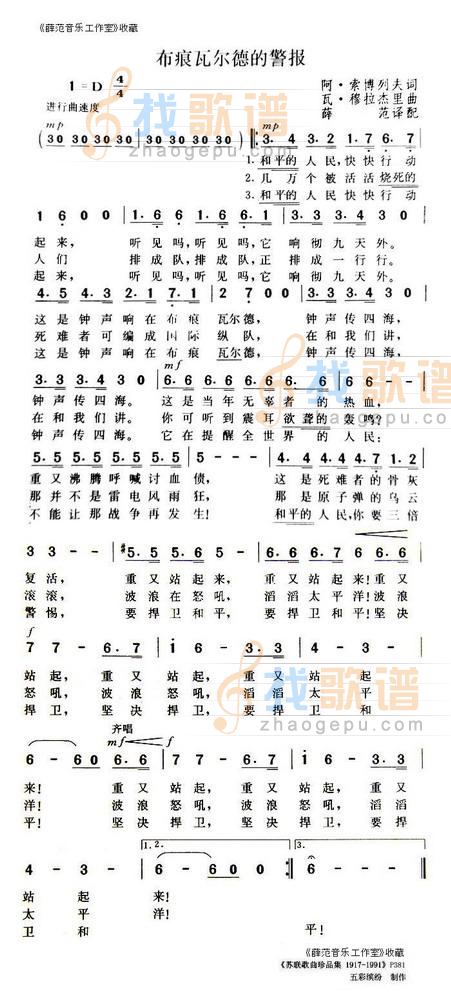 《薛范音乐工作室》收藏
布痕瓦尔德的警报
1=D 4/4
阿·索博列夫词
进行曲速度
瓦·穆拉杰里曲
薛 范译配
mp
mp
30 30 30 30 30 30 30 30
3. 4 3. 2 1. 7 6. 7
1. 和平的 人民,快快行动
2. 几万个被活活烧死的
3. 和平的 人民快快行动
1 6 0 0 1. 6 6 1. 6 6. 6 1 3. 3 3. 4 3 0
起来, 听见吗,听见吗,它 响彻九天外。
人们 排成队,排成队,正 排成一行行。
起来, 听见吗,听见吗,它 响彻九天外。
4. 5 4. 3 2. 1 7. 1 2 7 0 0 3. 3 3. 4 3 0
这是钟声响在布痕 瓦尔德, 钟声传四海,
死难者可编成国际 纵队, 在和我们讲,
这是钟声响在布痕 瓦尔德, 钟声传四海,
mf
3. 3 3. 4 3 0 6. 6 6. 6 6. 6 6. 6 6. 6 6 -
钟声传四海。 这是当年无辜者的 热血,
在和我们讲。 你可听到震耳欲聋的 轰鸣?
钟声传四海。 它在提醒全世界的 人民:
5. 5 5. 5 5. 5 5. 5 5 - 4. 4 4. 4 4. 7 1. 2
重又沸腾呼喊讨血债, 这是死难者的骨灰
那并不是雷电风雨狂, 那是原子弹的乌云
不能让那战争再发生! 和平的人民,你要三倍
3 3 - - #5. 5 5. 6 5 - 6. 6 6. 7 6 6. 6
复活, 重又站起来, 重又站起来!重又
滚滚, 波浪在怒吼, 滔滔太平洋!波浪
警惕, 要捍卫和平, 要捍卫和平!坚决
f
7 7 - 6. 7 1 1 - 6. 3 4 - 3 -
站起, 重又站起, 重又站起
怒吼, 波浪怒吼, 滔滔太平
捍卫, 坚决捍卫, 要捍卫和
齐唱
mf
6 - 6 0 6. 6 7 7 - 6. 7 1 1 - 6. 3
来! 重又站起, 重又
洋! 波浪怒吼, 滔滔
平! 坚决捍卫, 要捍
1. 2.
3.
4 - 3 - 6 - 6 0 0 6 - 6 0 0
站起来!
太平洋!
卫和 平!
《薛范音乐工作室》收藏
《苏联歌曲珍品集 1917-1991》P381
五彩缤纷 制作
找歌谱
zhaogepu.com
找歌谱
zhaogepu.com
找歌谱
zhaogepu.com